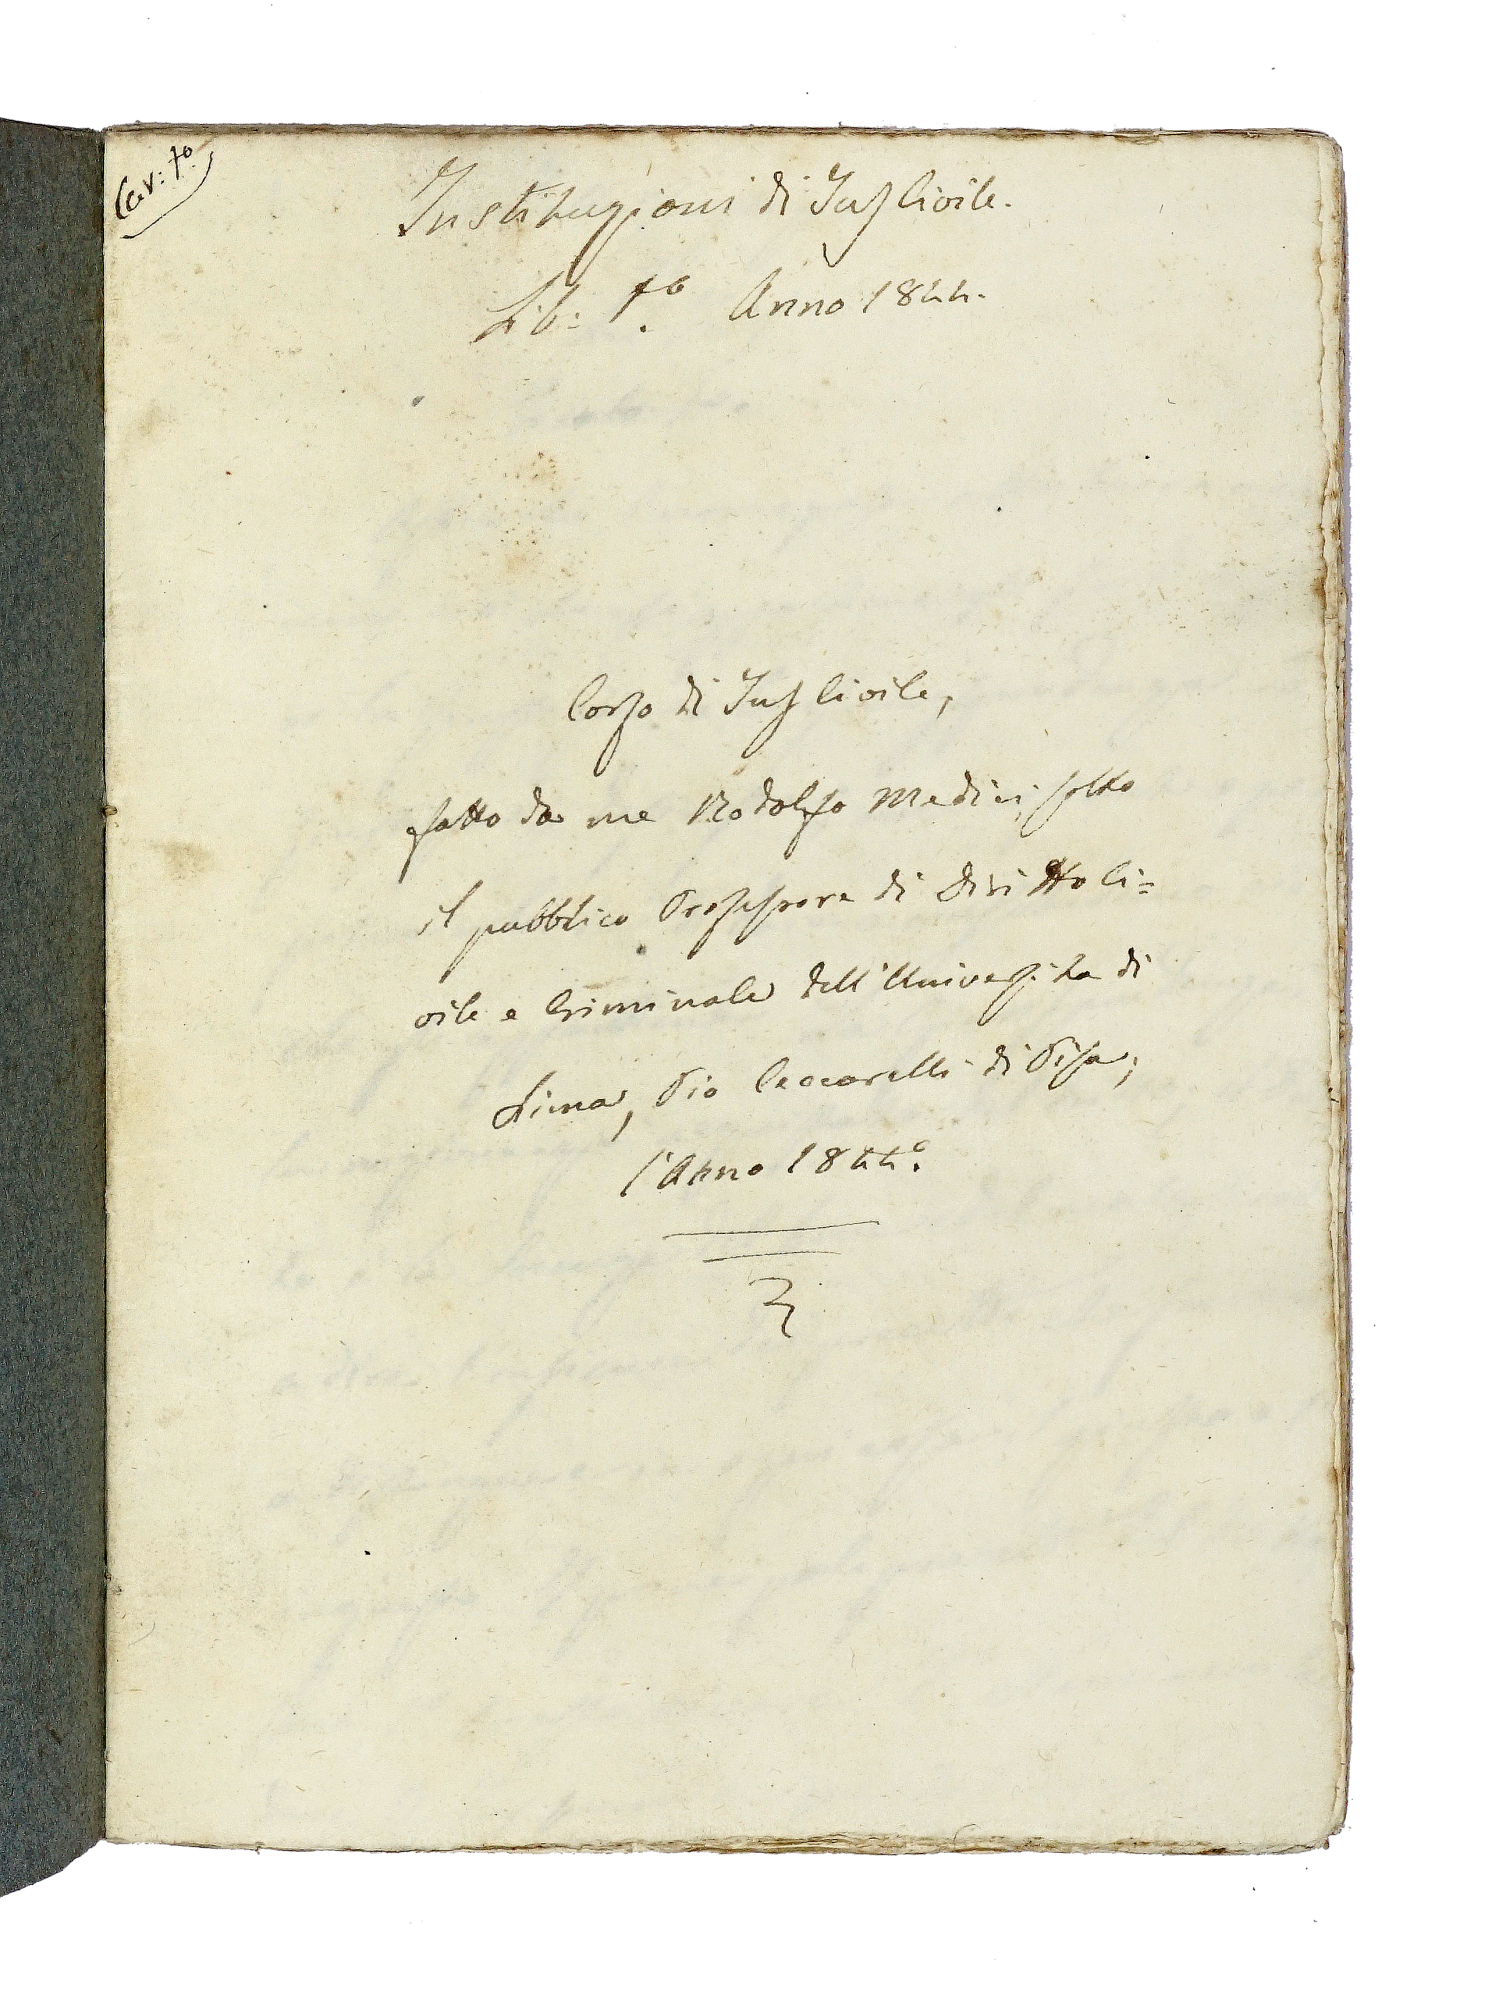 Car: 1º
Instituzioni di Jus Civile.
Lib: 1.º Anno 1844.
Corso di Jus Civile,
fatto da me Rodolfo Medici, sotto
il pubblico Professore di Diritto Ci=
vile e Criminale dell'Università di
Pio Ceccarelli di Pisa,
l'Anno 1844º.